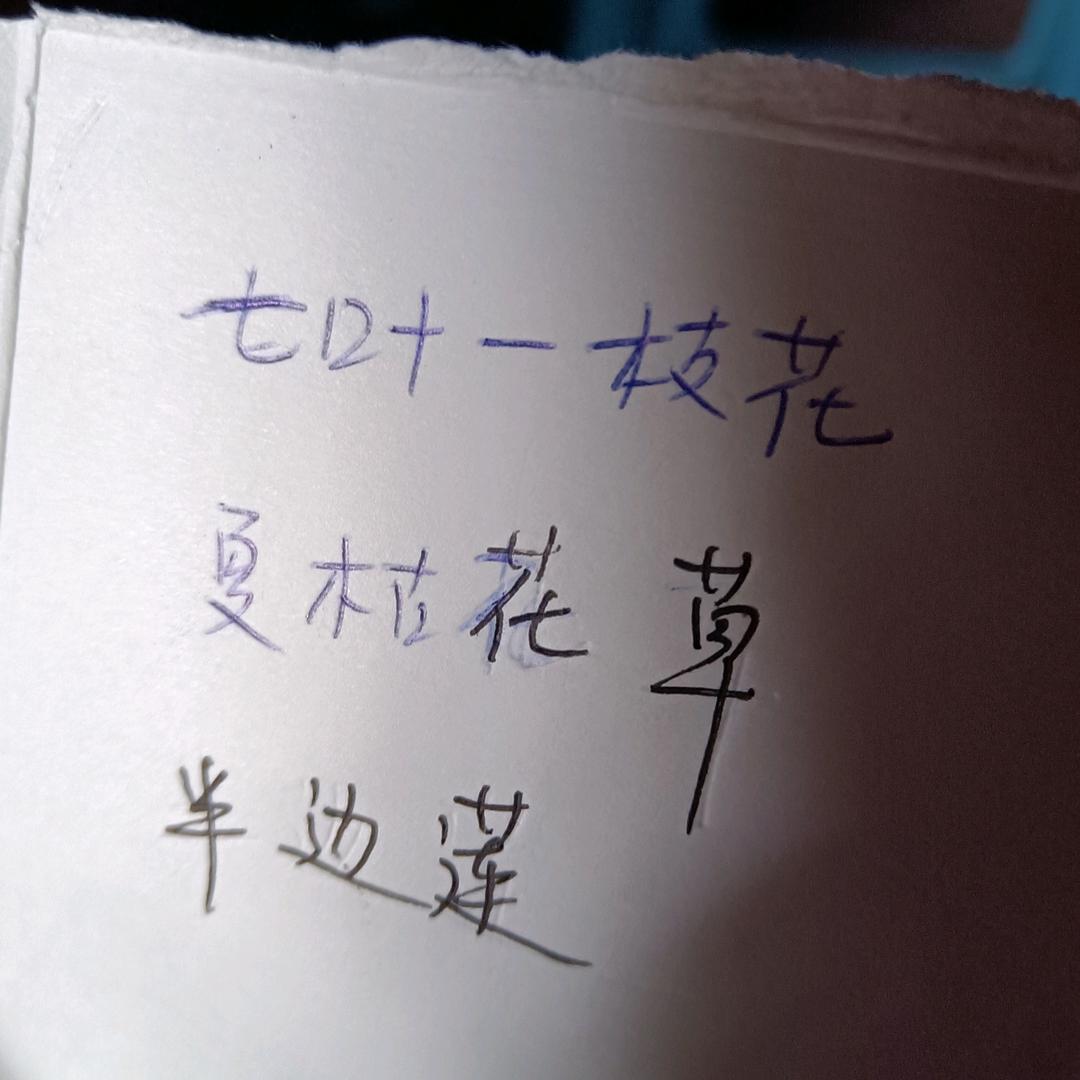 七叶一枝花
夏枯花 草
半边莲